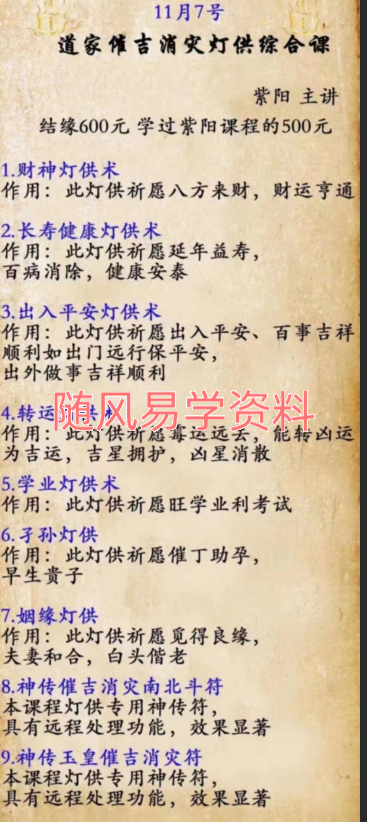 11月7号
道家催吉消灾灯供综合课
紫阳 主讲
结缘600元 学过紫阳课程的500元
1.财神灯供术
作用：此灯供祈愿八方来财，财运亨通
2.长寿健康灯供术
作用：此灯供祈愿延年益寿，
百病消除，健康安泰
3.出入平安灯供术
作用：此灯供祈愿出入平安、百事吉祥
顺利如出门远行保平安，
出外做事吉祥顺利
随风易学资料
4.转运
作用：此灯供祈愿霉运远去，能转凶运
为吉运，吉星拥护，凶星消散
5.学业灯供术
作用：此灯供祈愿旺学业利考试
6.子孙灯供
作用：此灯供祈愿催丁助孕，
早生贵子
7.姻缘灯供
作用：此灯供祈愿觅得良缘，
夫妻和合，白头偕老
8.神传催吉消灾南北斗符
本课程灯供专用神传符，
具有远程处理功能，效果显著
9.神传玉皇催吉消灾符
本课程灯供专用神传符，
具有远程处理功能，效果显著